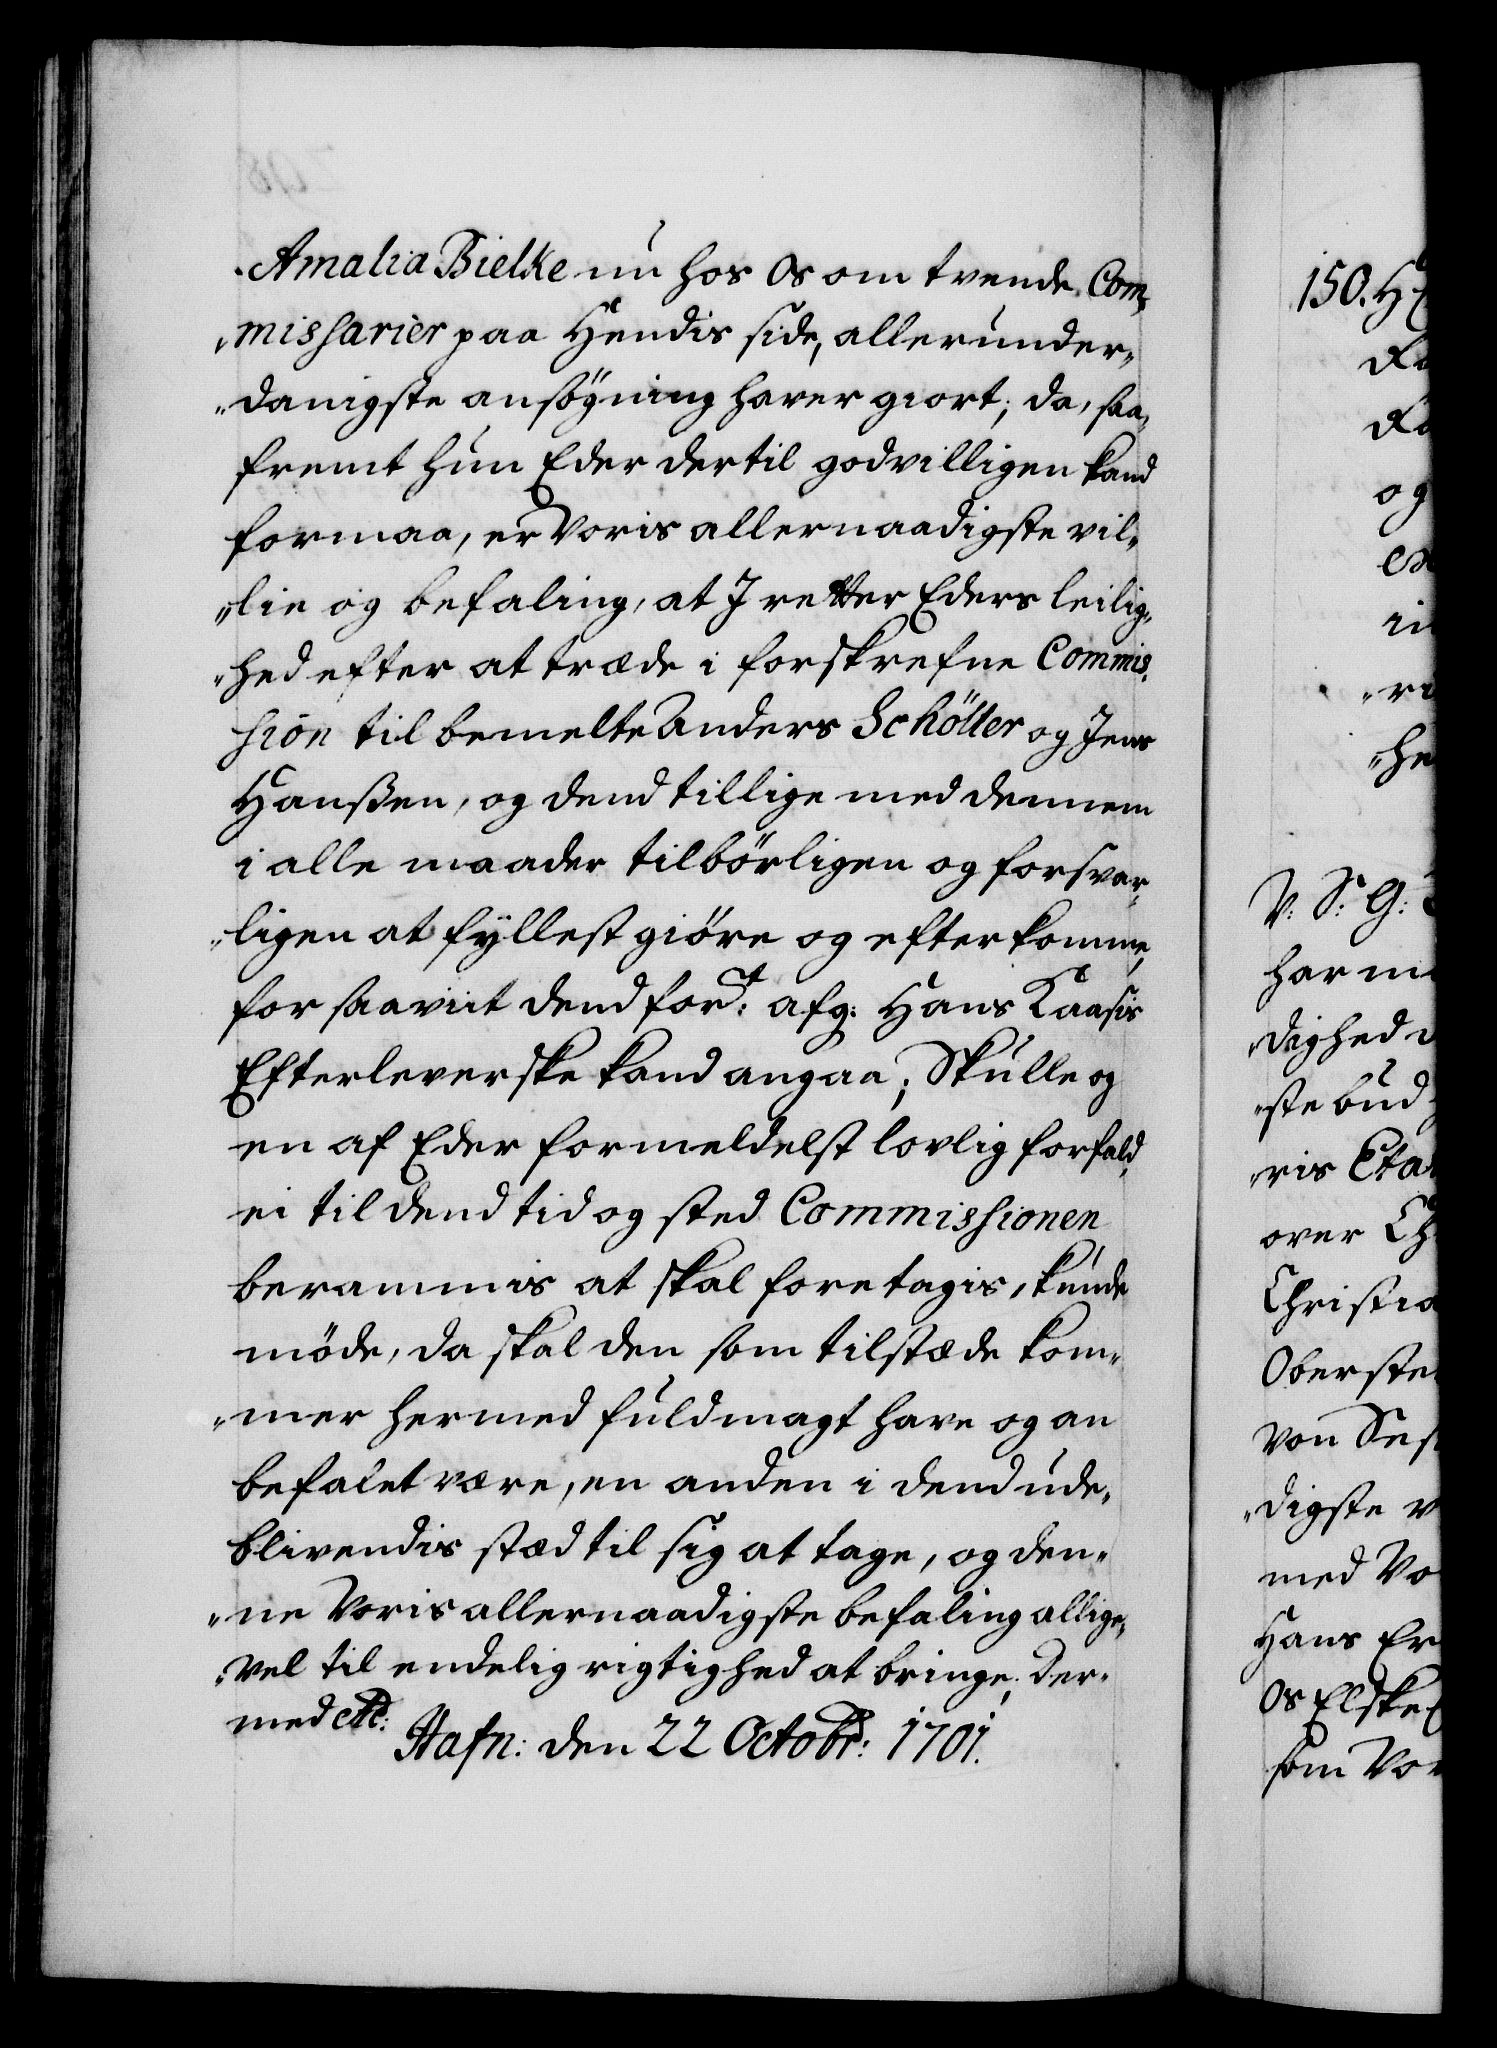 Amalia Bielke nu hos Os om tvende Com„
„missarier paa Hendis side, allerunder„
„danigste ansøgning haver giort; da, saa„
fremt hun Eder dertil godvilligen kand
formaa, er Voris allernaadigste vil„
„lie og befaling, at I retter Eders leilig„
„hed efter at træde i forskrefne Commis„
sion til bemelte Anders Schöller og Jens
Hanßen, og dend tillige med dennem
i alle maader tilbörligen og forsvar„
„ligen at fyllest giöre og efterkomme,
for saavit dend fort: afg: Hans Kaasis
Efterleverske kand angaa; Skulle og
en af Eder formedelst lovlig forfald,
ei til dend tid og sted Commissionen
berammis at skal foretagis, kunde
möde, da skal den som tilstæde kom„
„mer hermed fuldmagt have og an
befalet være, en anden i dend ude„
blivendis stæd til sig at tage, og den„
„ne Voris allernaadigste befaling allige„
„vel til endelig rigtighed at bringe; Der„
med etc:
Hafn: den 22 Octobr: 1701.
150. H
og
„he
V: S: G:
har m
„dighed
„ste bud
„ris Eta
over Ch
Christia
Oberste
von Ses
„digste v
med Vo
Hans Er
Os Elske
som Vor